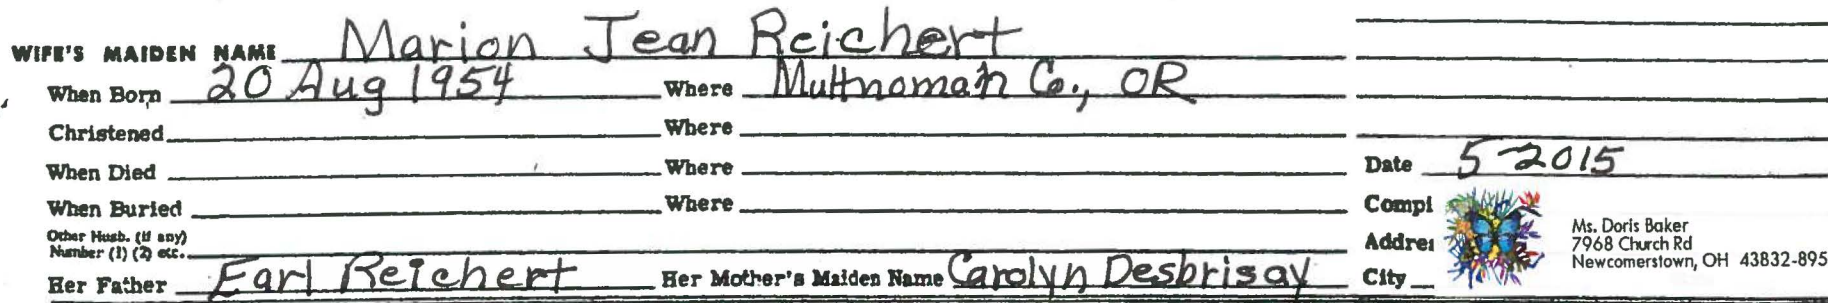 WIFE'S MAIDEN NAME Marion Jean Reichert
When Born 20 Aug 1954 Where Multnomah Co., OR
Christened Where
When Died Where Date 5-2015
When Buried Where Compl
Other Husb. (if any)
Number (1) (2) etc. Addres
Her Father Earl Reichert Her Mother's Maiden Name Carolyn Desbrisay City
Ms. Doris Baker
7968 Church Rd
Newcomerstown, OH 43832-895